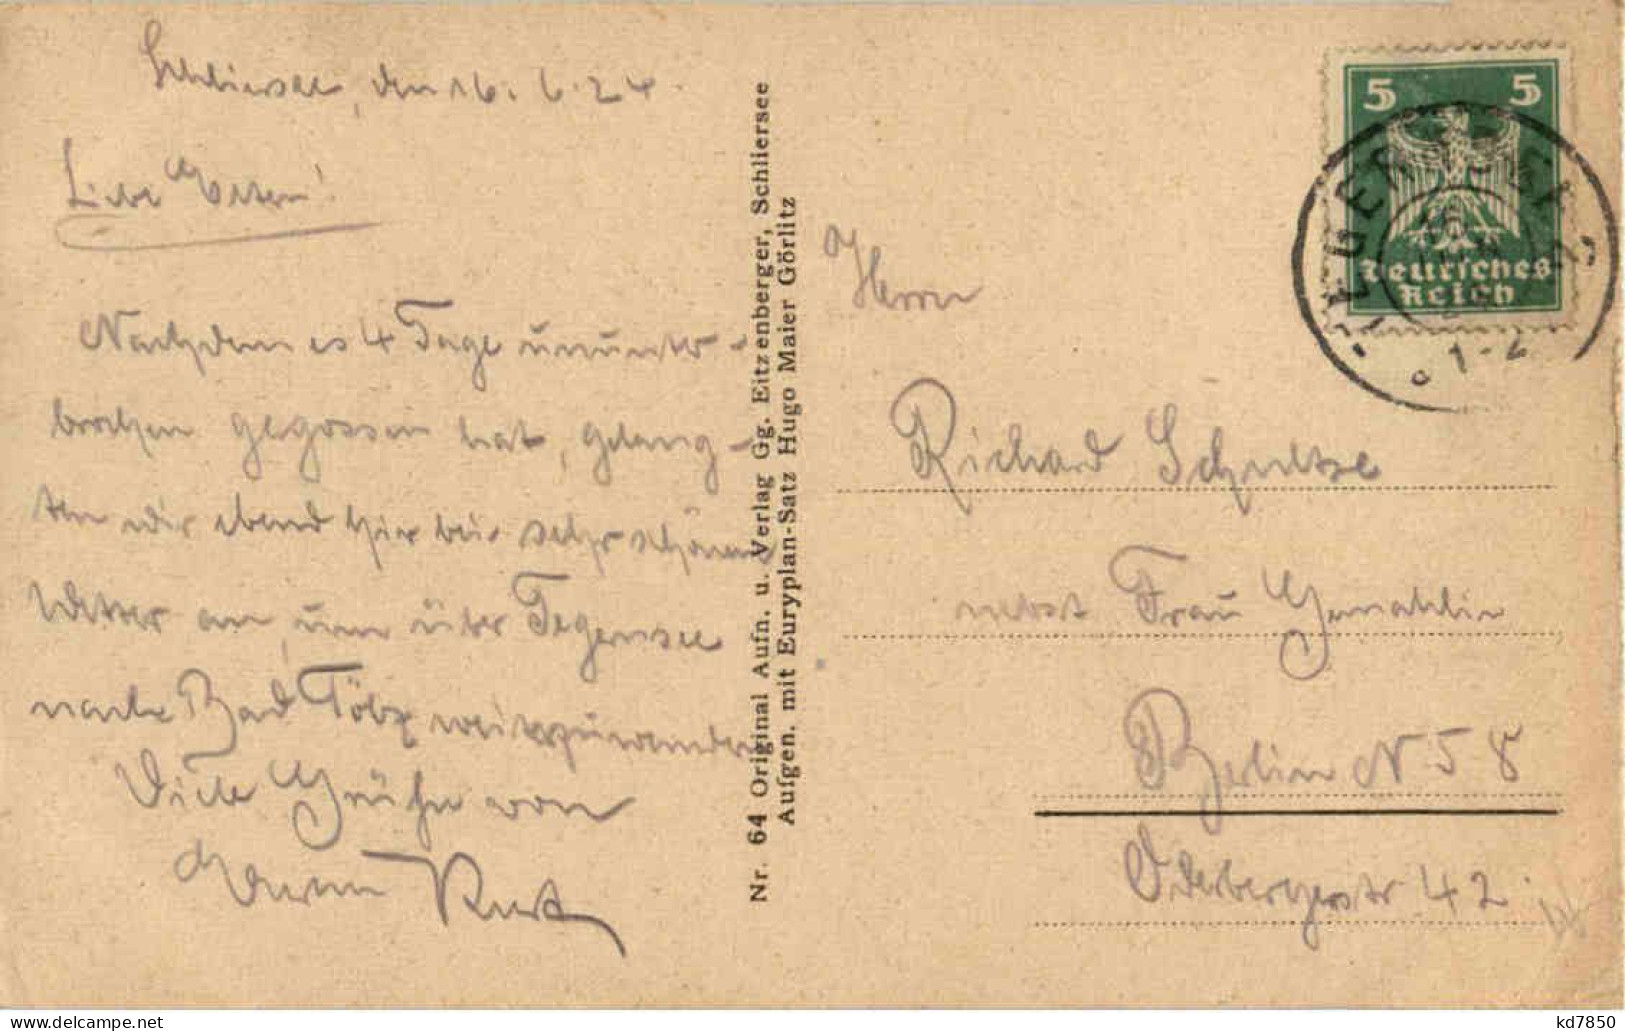 Schliersee, den 16. 6. 24.
Liebe Eltern!
Nachdem es 4 Tage ununter-
brochen gegossen hat, gelang-
ten wir abend hier bei sehr schönem
Wetter an, um über Tegernsee
nach Bad Tölz weiterzuwandern
Viele Grüße von
Eurem Kurt
Nr. 64 Original Aufn. u. Verlag Gg. Eitzenberger, Schliersee
Aufgen. mit Euryplan-Satz Hugo Maier Görlitz
5 5
Deutsches
Reich
TEGERNSEE 2
1-2
Herrn
Richard Schultze
nebst Frau Gemahlin
Berlin N 58
Oderbergerstr. 42
kd7850